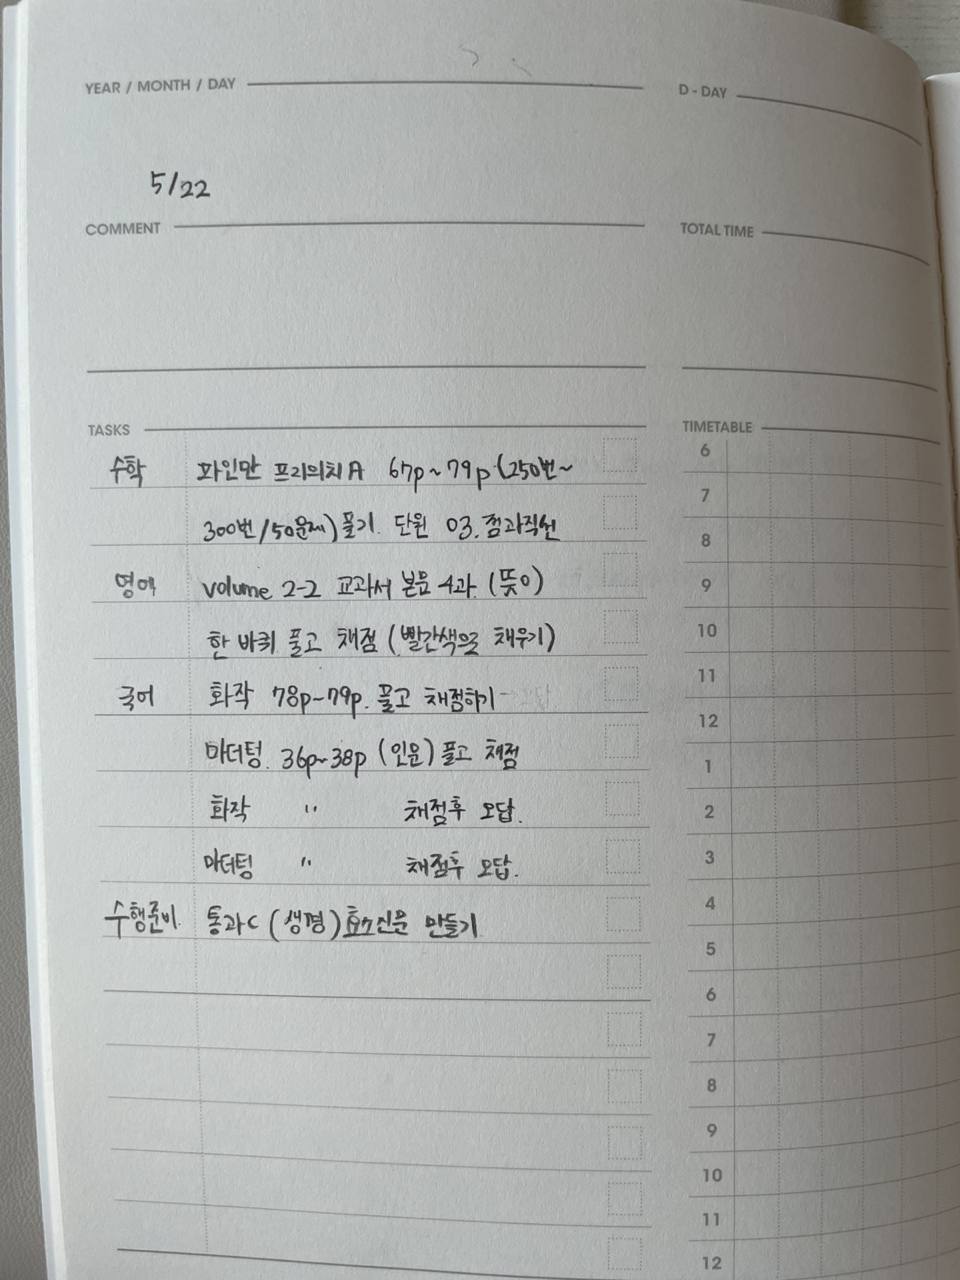 YEAR / MONTH / DAY
D - DAY
5/22
COMMENT
TOTAL TIME
TASKS
TIMETABLE
수학 파인만 프리의치A 67p~79p (250번~
300번/50문제)풀기. 단원 03. 점과직선
영어 volume 2-2 교과서 본문 4과. (뜻이)
한 바퀴 풀고 채점 (빨간색으로 채우기)
국어 화작 78p~79p. 풀고 채점하기
마더텅. 36p~38p (인문) 풀고 채점
화작 " 채점후 오답.
마더텅 " 채점후 오답.
수행준비. 통과C (생명) 효소신문 만들기
6
7
8
9
10
11
12
1
2
3
4
5
6
7
8
9
10
11
12